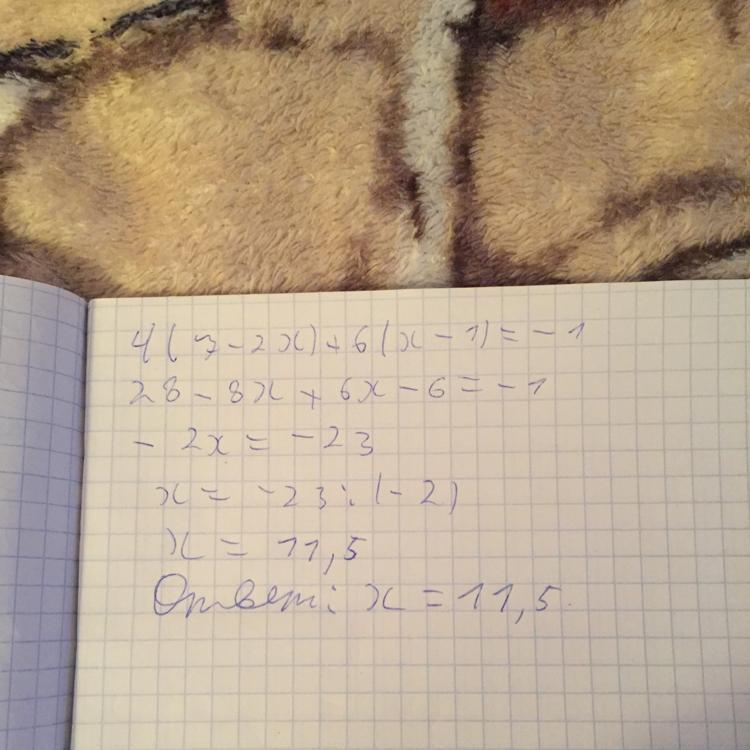 4(7-2x)+6(x-1)=-1
28-8x+6x-6=-1
-2x=-23
x=-23:(-2)
x=11,5
Ответ: x=11,5.